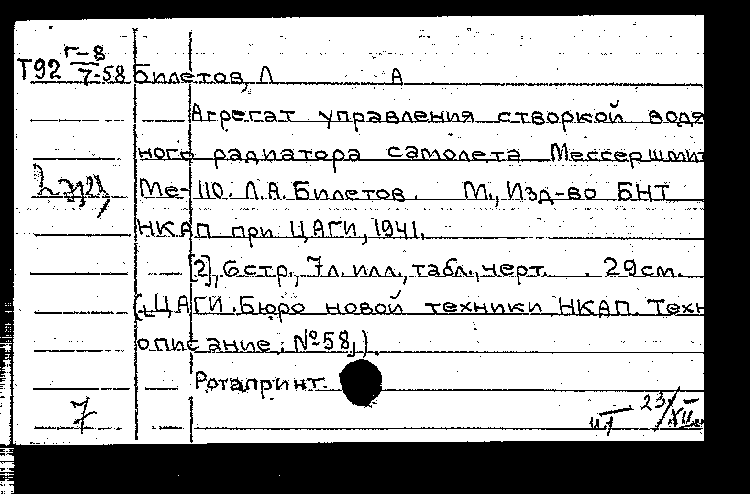 Т92 Г-8
7-58 Билетов, Л А
Агрегат управления створкой водя
ного радиатора самолета Мессершмит
Ме-110. Л.А. Билетов. М., Изд-во БНТ
НКАП при ЦАГИ, 1941.
[2], 6 стр., 7 л. илл., табл., черт. . 29 см.
(ЦАГИ. Бюро новой техники НКАП. Техн
описание: № 58,).
Ротапринт.
7 23/XII